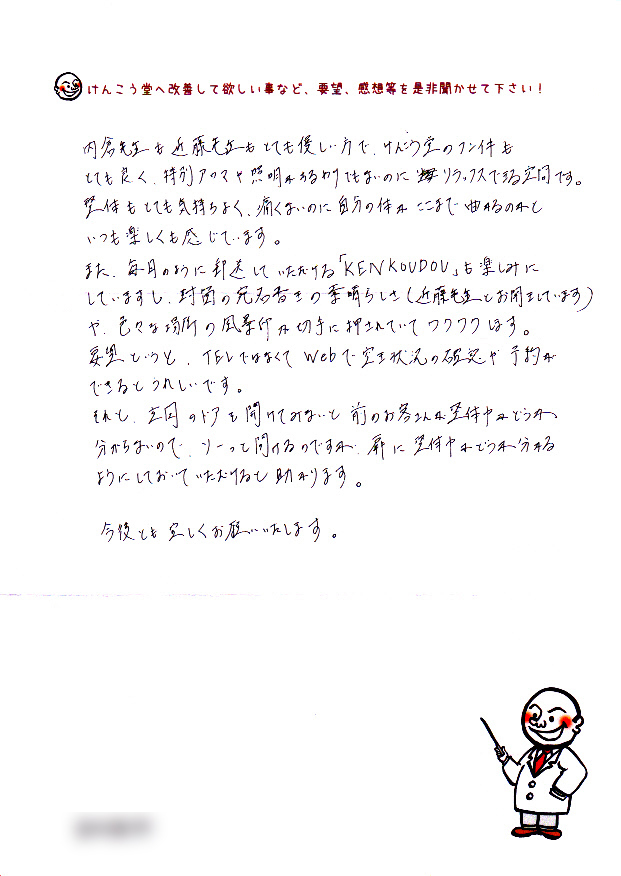 けんこう堂へ改善して欲しい事など、要望、感想等を是非聞かせて下さい!
内倉先生も近藤先生もとても優しい方で、けんこう堂のフン件も
とても良く、特別アロマや照明があるわけでもないのにリラックスできる空間です。
整体もとても気持ちよく、痛くないのに自分の体がここまで曲がるのかと
いつも楽しくも感じています。
また、毎月のように郵送していただける「KENKOUDOU」も楽しみに
していますし、封筒の宛名書きの素晴らしさ(近藤先生とお聞きしています)
や、色々な場所の風景印が切手に押されていてワクワクします。
要望というと、TELではなくてWebで空き状況の確認や予約が
できるとうれしいです。
それと、玄関のドアを開けてみないと前のお客さんが整体中かどうか、
分からないので、ソーっと開けるのですが、扉に整体中かどうか分かる
ようにしておいていただけると助かります。
今後とも宜しくお願いいたします。